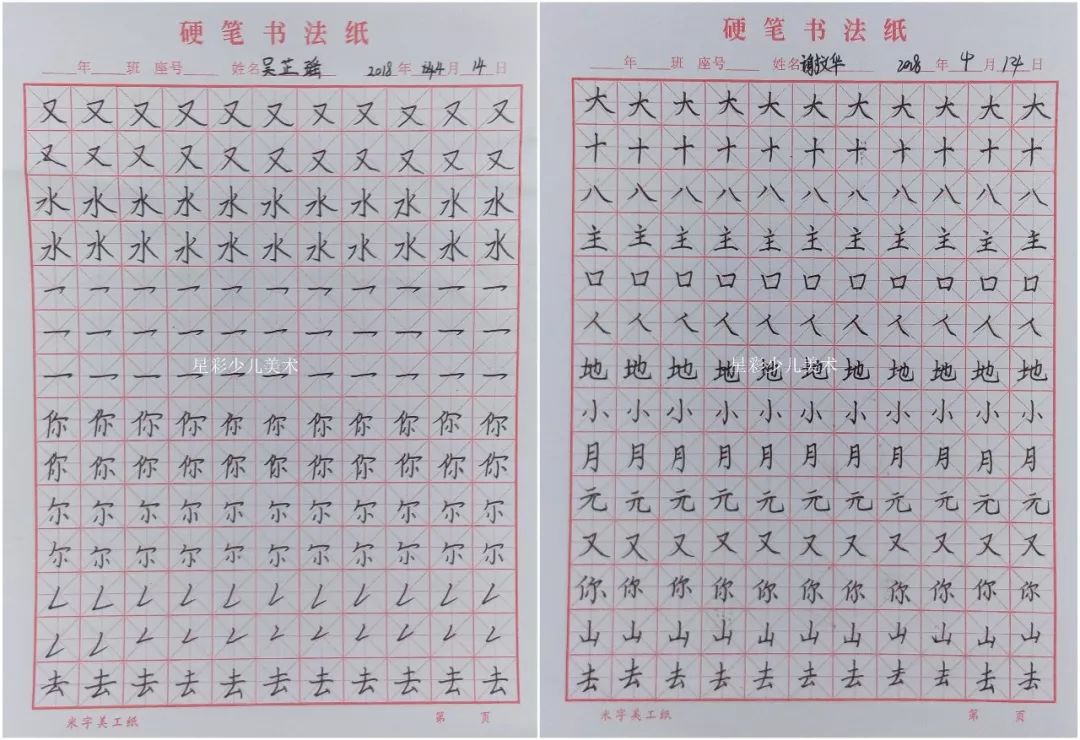 硬笔书法纸
年 班 座号 姓名 吴芷瑶 2018 年 月 14 日
又又又又又又又又又又又
又又又又又又又又又又又
水水水水水水水水水水水
水水水水水水水水水水水
一一一一一一一一一一一
一一一一一一一一一一一
一一一一一一一一一一一
星彩少儿美术
你你你你你你你你你你你
你你你你你你你你你你你
尔尔尔尔尔尔尔尔尔尔尔
尔尔尔尔尔尔尔尔尔尔尔
去去去去去去去去去去去
米字美工纸 第 页
硬笔书法纸
年 班 座号 姓名 2018 年 4 月 日
大大大大大大大大大大大
十十十十十十十十十十十
八八八八八八八八八八八
主主主主主主主主主主主
口口口口口口口口口口口
人人人人人人人人人人人
地地地地地地地地地地地
星彩少儿美术
小小小小小小小小小小小
月月月月月月月月月月月
元元元元元元元元元元元
又又又又又又又又又又又
你你你你你你你你你你你
山山山山山山山山山山山
去去去去去去去去去去去
米字美工纸 第 页